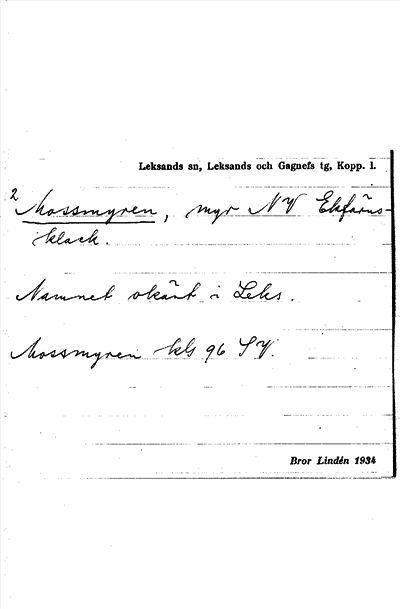 Leksands sn, Leksands och Gagnefs tg, Kopp. l.
2 Mossmyren, myr NV Ekfärus-
klack.
Namnet okänt i Leks.
Mossmyren kls 96 SV.
Bror Lindén 1934